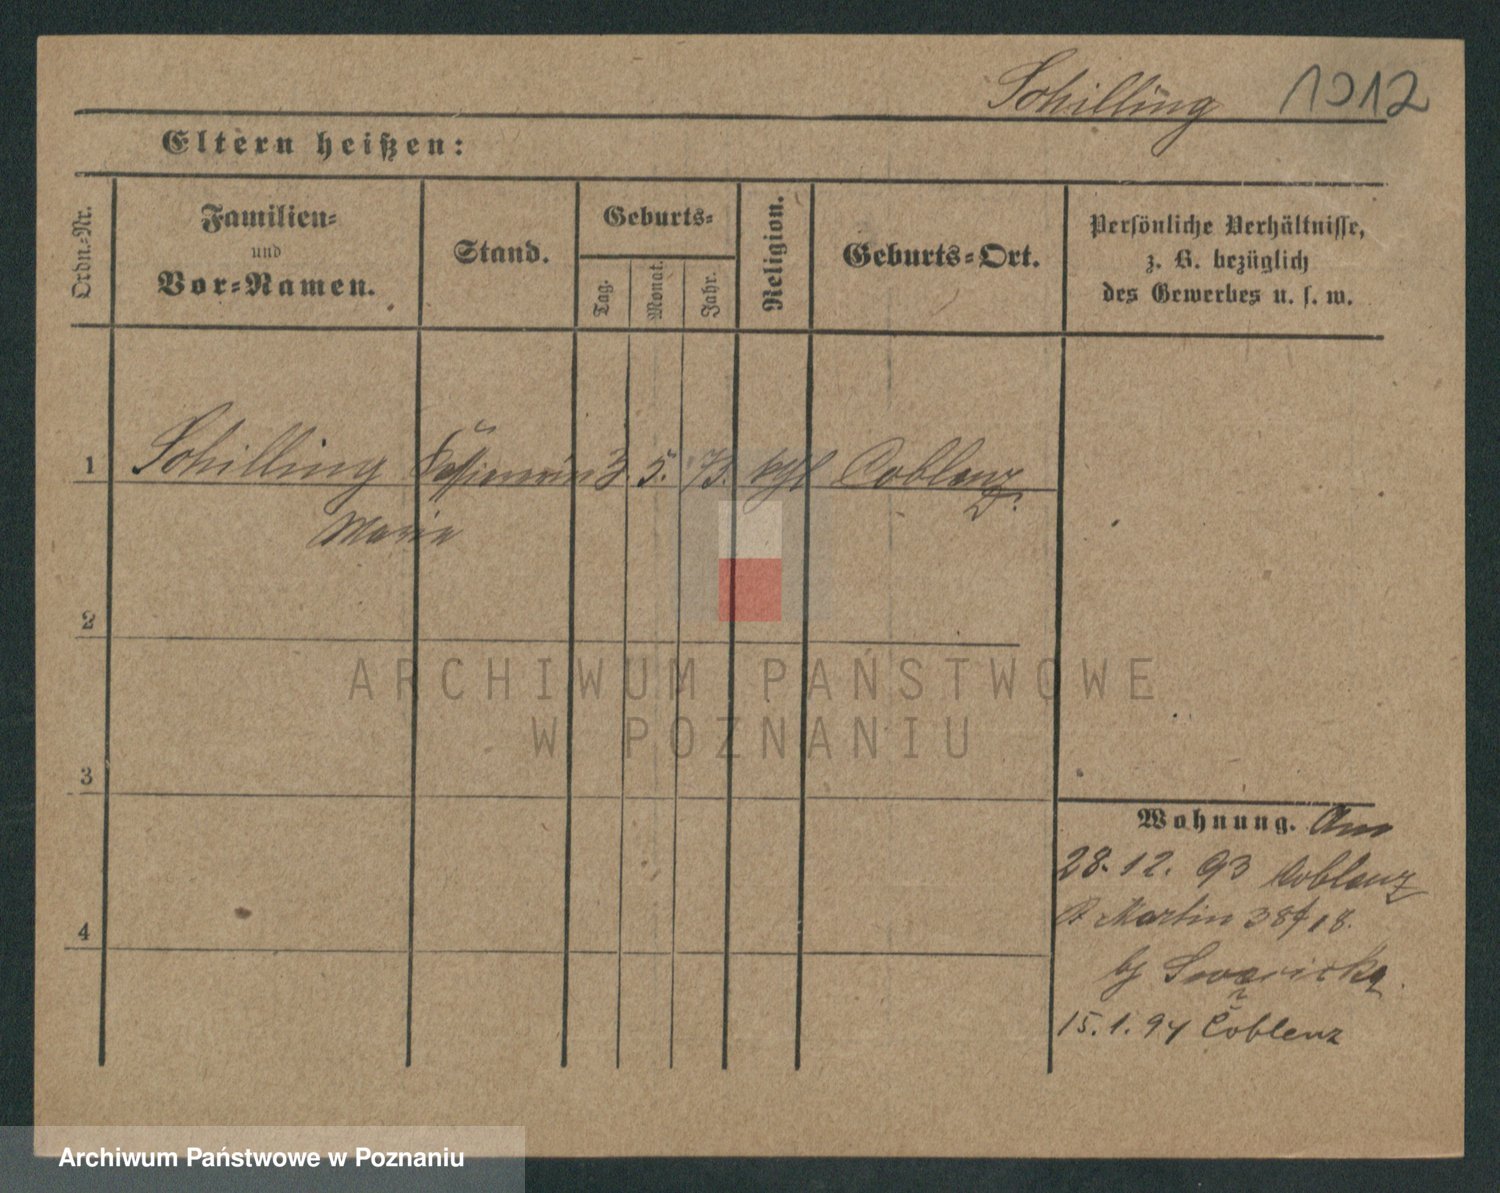 Schilling 1012
Eltern heißen:
Ordn.-Nr.
Familien-
und
Vor-Namen.
Stand.
Geburts-
Tag.
Monat.
Jahr.
Religion.
Geburts-Ort.
Persönliche Verhältnisse,
z. B. bezüglich
des Gewerbes u. s. w.
1 Schilling Kassiererin 3. 5. 73. kgl Coblenz
Marie
2
ARCHIWUM PAŃSTWOWE
W POZNANIU
3
Wohnung. Am
28. 12. 93 Coblenz
St Martin 38 18.
4
15. 1. 94 Coblenz
Archiwum Państwowe w Poznaniu